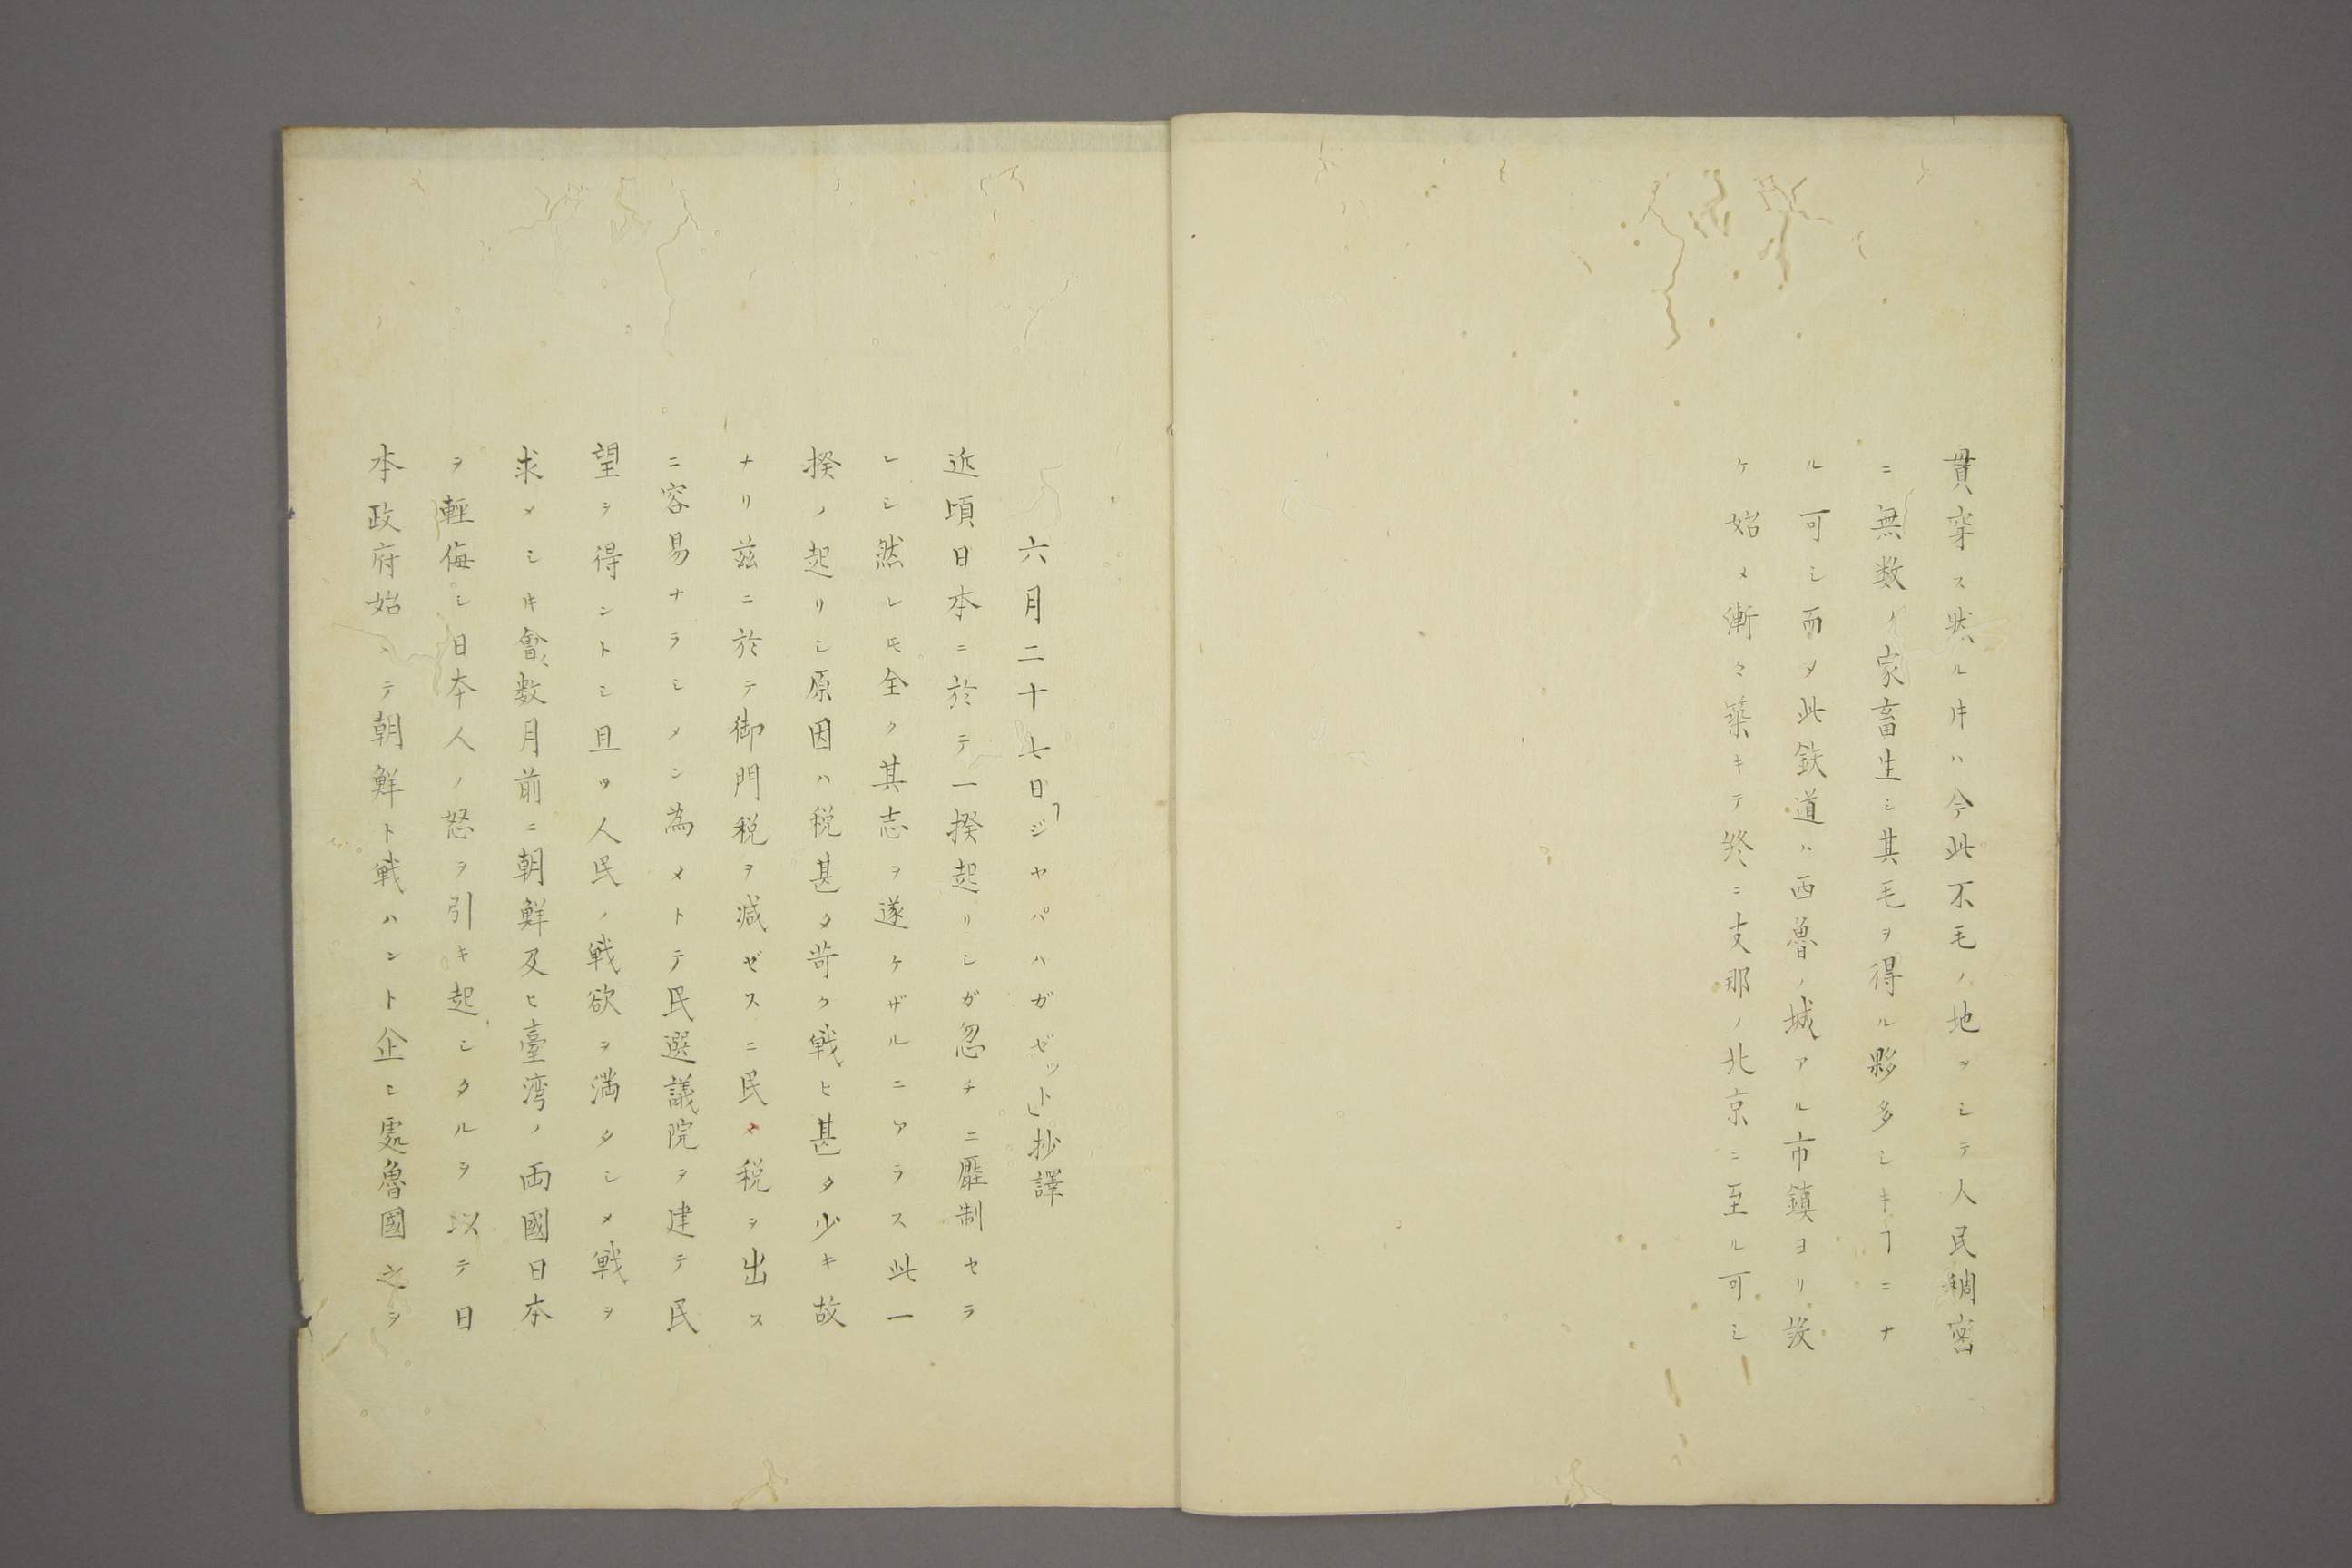 貫穿ス然ル𪜈ハ今此不毛ノ地ヲシテ人民稠密
ニ無数ノ家畜生シ其毛ヲ得ル夥多シキヿニナ
ル可シ而メ此鉄道ハ西魯ノ城アル市鎮ヨリ設
ケ始メ漸々築キテ終ニ支那ノ北京ニ至ル可シ
六月二十七日「ジヤパハガゼツト」抄譯
近頃日本ニ於テ一揆起リシガ忽チニ壓制セラ
レシ然レ𪜈全ク其志ヲ遂ケザルニアラス此一
揆ノ起リシ原因ハ税甚タ苛ク戦ヒ甚タ少キ故
ナリ茲ニ於テ御門税ヲ減ゼスニ民々税ヲ出ス
ニ容易ナラシメン為メトテ民選議院ヲ建テ民
望ヲ得ントシ且ツ人民ノ戦欲ヲ満タシメ戦ヲ
求メシキ會々数月前ニ朝鮮及ヒ臺湾ノ両國日本
ヲ輕侮シ日本人ノ怒ヲ引キ起シタルヲ以テ日
本政府始メテ朝鮮ト戦ハント企ヒ處魯國之ヲ